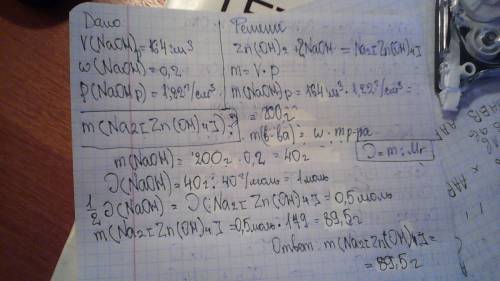 Дано
V(NaOH)=164см³
ω(NaOH)=0,2
ρ(NaOHр)=1,22г/см³
m(Na2[Zn(OH)4])-?
Решение
Zn(OH)2+2NaOH = Na2[Zn(OH)4]
m=V·ρ
m(NaOH)р=164см³·1,22г/см³=
=200г
m(в-ва)=ω·mр-ра
m(NaOH)=200г·0,2=40г
ν=m:Mr
ν(NaOH)=40г:40г/моль=1моль
1/2ν(NaOH)=ν(Na2[Zn(OH)4])=0,5моль
m(Na2[Zn(OH)4]=0,5моль·179=89,5г
Ответ: m(Na2[Zn(OH)4]=
=89,5г